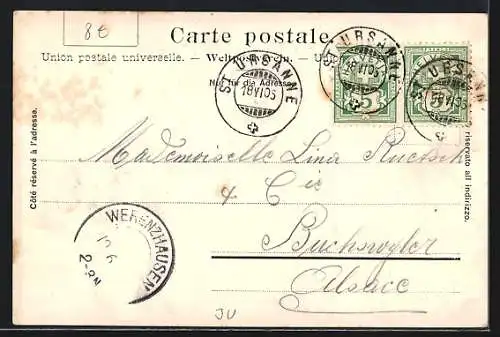 80
Carte postale.
Union postale universelle. — Weltpostverein. — U
Nur für die Adresse
Côté réservé à l'adresse.
riservato all indirizzo.
ST URSANNE
18 VI 05
ST URSANNE
18 VI 05
ST URSANNE
VI 05
5
Mademoiselle Lina
& Cie
Buchswyler
Alsace
WERENZHAUSEN
6
2-8N
JU